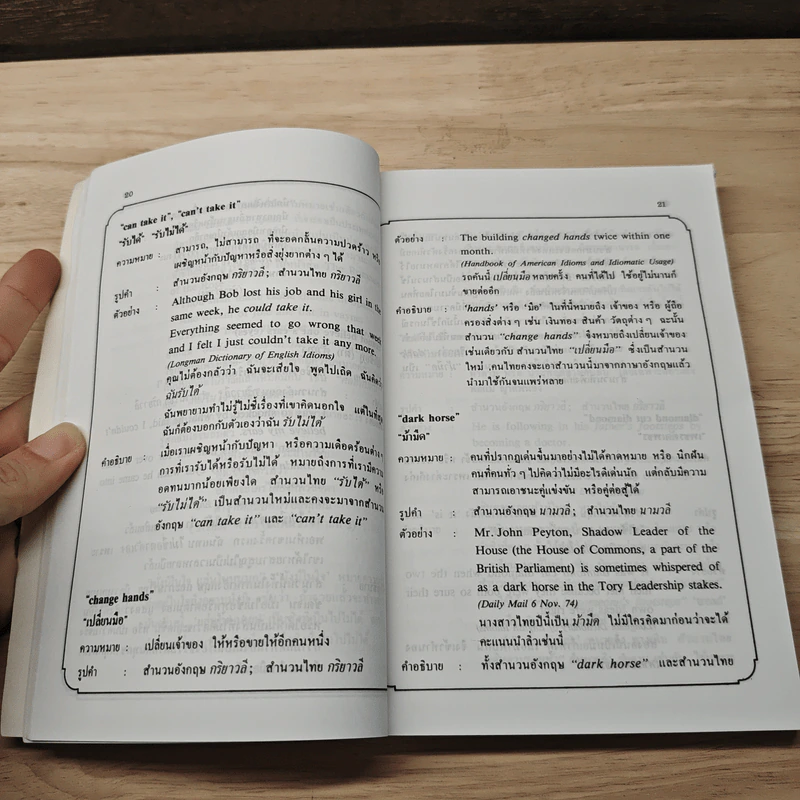 20
"can take it", "can't take it"
"รับได้" "รับไม่ได้"
ความหมาย : สามารถ, ไม่สามารถ ที่จะอดกลั้นความปวดร้าว หรือ
เผชิญหน้ากับปัญหาหรือสิ่งยุ่งยากต่าง ๆ ได้
รูปคำ : สำนวนอังกฤษ กริยาวลี ; สำนวนไทย กริยาวลี
ตัวอย่าง : Although Bob lost his job and his girl in the
same week, he could take it.
Everything seemed to go wrong that week
and I felt I just couldn't take it any more.
(Longman Dictionary of English Idioms)
คุณไม่ต้องกลัวว่า ฉันจะเสียใจ พูดไปเถิด ฉันคิดว่า
ฉันรับได้
ฉันพยายามทำไม่รู้ไม่ชี้เรื่องที่เขาคิดนอกใจ แต่ในที่สุด
ฉันก็ต้องบอกกับตัวเองว่าฉัน รับไม่ได้
คำอธิบาย : เมื่อเราเผชิญหน้ากับปัญหา หรือความเดือดร้อนต่าง ๆ
การที่เรารับได้หรือรับไม่ได้ หมายถึงการที่เรามีความ
อดทนมากน้อยเพียงใด สำนวนไทย "รับได้" หรือ
"รับไม่ได้" เป็นสำนวนใหม่และคงจะมาจากสำนวน
อังกฤษ "can take it" และ "can't take it"
"change hands"
"เปลี่ยนมือ"
ความหมาย : เปลี่ยนเจ้าของ ให้หรือขายให้อีกคนหนึ่ง
รูปคำ : สำนวนอังกฤษ กริยาวลี ; สำนวนไทย กริยาวลี
21
ตัวอย่าง : The building changed hands twice within one
month.
(Handbook of American Idioms and Idiomatic Usage)
รถคันนี้ เปลี่ยนมือ หลายครั้ง คนที่ได้ไป ใช้อยู่ไม่นานก็
ขายต่ออีก
คำอธิบาย : 'hands' หรือ 'มือ' ในที่นี้หมายถึง เจ้าของ หรือ ผู้ถือ
ครองสิ่งต่าง ๆ เช่น เงินทอง สินค้า วัตถุต่าง ๆ ฉะนั้น
สำนวน "change hands" จึงหมายถึงเปลี่ยนเจ้าของ
เช่นเดียวกับ สำนวนไทย "เปลี่ยนมือ" ซึ่งเป็นสำนวน
ใหม่ คนไทยคงจะเอาสำนวนนี้มาจากภาษาอังกฤษแล้ว
นำมาใช้กันจนแพร่หลาย
"dark horse"
"ม้ามืด"
ความหมาย : คนที่ปรากฏเด่นขึ้นมาอย่างไม่ได้คาดหมาย หรือ นึกฝัน
คนที่คนทั่ว ๆ ไปคิดว่าไม่มีอะไรดีเด่นนัก แต่กลับมีความ
สามารถเอาชนะคู่แข่งขัน หรือคู่ต่อสู้ได้
รูปคำ : สำนวนอังกฤษ นามวลี ; สำนวนไทย นามวลี
ตัวอย่าง : Mr. John Peyton, Shadow Leader of the
House (the House of Commons, a part of the
British Parliament) is sometimes whispered of
as a dark horse in the Tory Leadership stakes.
(Daily Mail 6 Nov. 74)
นางสาวไทยปีนี้เป็น ม้ามืด ไม่มีใครคิดมาก่อนว่าจะได้
คะแนนนำลิ่วเช่นนี้
คำอธิบาย : ทั้งสำนวนอังกฤษ "dark horse" และสำนวนไทย